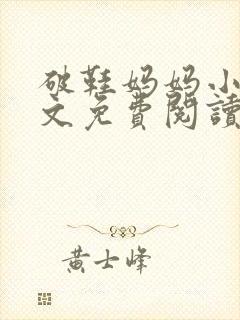 破鞋妈妈小
文免費閱讀
黄士峰